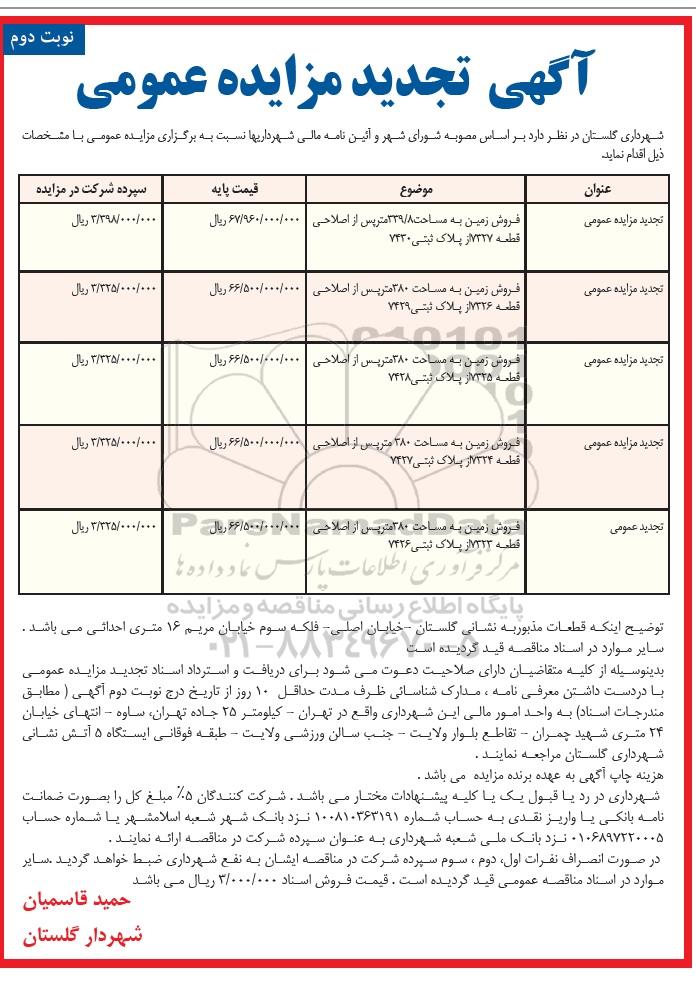 نوبت دوم
آگهی تجدید مزایده عمومی
شهرداری گلستان در نظر دارد بر اساس مصوبه شورای شهر و آئین نامه مالی شهرداریها نسبت به برگزاری مزایده عمومی با مشخصات
ذیل اقدام نماید.
عنوان موضوع قیمت پایه سپرده شرکت در مزایده
تجدید مزایده عمومی فروش زمین به مساحت۳۳۹/۸مترپس از اصلاحی ۶۷/۹۶۰/۰۰۰/۰۰۰ ریال ۳/۳۹۸/۰۰۰/۰۰۰ ریال
قطعه ۷۳۲۷از پلاک ثبتی۷۴۳۰
تجدید مزایده عمومی فروش زمین به مساحت ۳۸۰مترپس از اصلاحی ۶۶/۵۰۰/۰۰۰/۰۰۰ ریال ۳/۳۲۵/۰۰۰/۰۰۰ ریال
قطعه ۷۳۲۶از پلاک ثبتی۷۴۲۹
تجدید مزایده عمومی فروش زمین به مساحت ۳۸۰مترپس از اصلاحی ۶۶/۵۰۰/۰۰۰/۰۰۰ ریال ۳/۳۲۵/۰۰۰/۰۰۰ ریال
قطعه ۷۳۲۵از پلاک ثبتی۷۴۲۸
تجدید مزایده عمومی فروش زمین به مساحت ۳۸۰ مترپس از اصلاحی ۶۶/۵۰۰/۰۰۰/۰۰۰ ریال ۳/۳۲۵/۰۰۰/۰۰۰ ریال
قطعه ۷۳۲۴از پلاک ثبتی۷۴۲۷
تجدید عمومی فروش زمین به مساحت ۳۸۰مترپس از اصلاحی ۶۶/۵۰۰/۰۰۰/۰۰۰ ریال ۳/۳۲۵/۰۰۰/۰۰۰ ریال
قطعه ۷۳۲۳از پلاک ثبتی۷۴۲۶
ParsNamadData
مرکز فرآوری اطلاعات پارس نماد داده ها
پایگاه اطلاع رسانی مناقصه و مزایده
توضیح اینکه قطعات مذبوربه نشانی گلستان -خیابان اصلی- فلکه سوم خیابان مریم ۱۶ متری احداثی می باشد .
سایر موارد در اسناد مناقصه قید گردیده است
بدینوسیله از کلیه متقاضیان دارای صلاحیت دعوت می شود برای دریافت و استرداد اسناد تجدید مزایده عمومی
با دردست داشتن معرفی نامه ، مدارک شناسائی ظرف مدت حداقل ۱۰ روز از تاریخ درج نوبت دوم آگهی ( مطابق
مندرجات اسناد) به واحد امور مالی این شهرداری واقع در تهران - کیلومتر ۲۵ جاده تهران، ساوه - انتهای خیابان
۲۴ متری شهید چمران - تقاطع بلوار ولایت - جنب سالن ورزشی ولایت - طبقه فوقانی ایستگاه ۵ آتش نشانی
شهرداری گلستان مراجعه نمایند .
هزینه چاپ آگهی به عهده برنده مزایده می باشد .
شهرداری در رد یا قبول یک یا کلیه پیشنهادات مختار می باشد . شرکت کنندگان ۵٪ مبلغ کل را بصورت ضمانت
نامه بانکی یا واریز نقدی به حساب شماره ۱۰۰۸۱۰۳۶۳۱۹۱ نزد بانک شهر شعبه اسلامشهر یا شماره حساب
۰۱۰۶۸۹۷۲۲۰۰۰۵ نزد بانک ملی شعبه شهرداری به عنوان سپرده شرکت در مناقصه ارائه نمایند .
در صورت انصراف نفرات اول، دوم ، سوم سپرده شرکت در مناقصه ایشان به نفع شهرداری ضبط خواهد گردید .سایر
موارد در اسناد مناقصه عمومی قید گردیده است . قیمت فروش اسناد ۳/۰۰۰/۰۰۰ ریال می باشد
حمید قاسمیان
شهردار گلستان